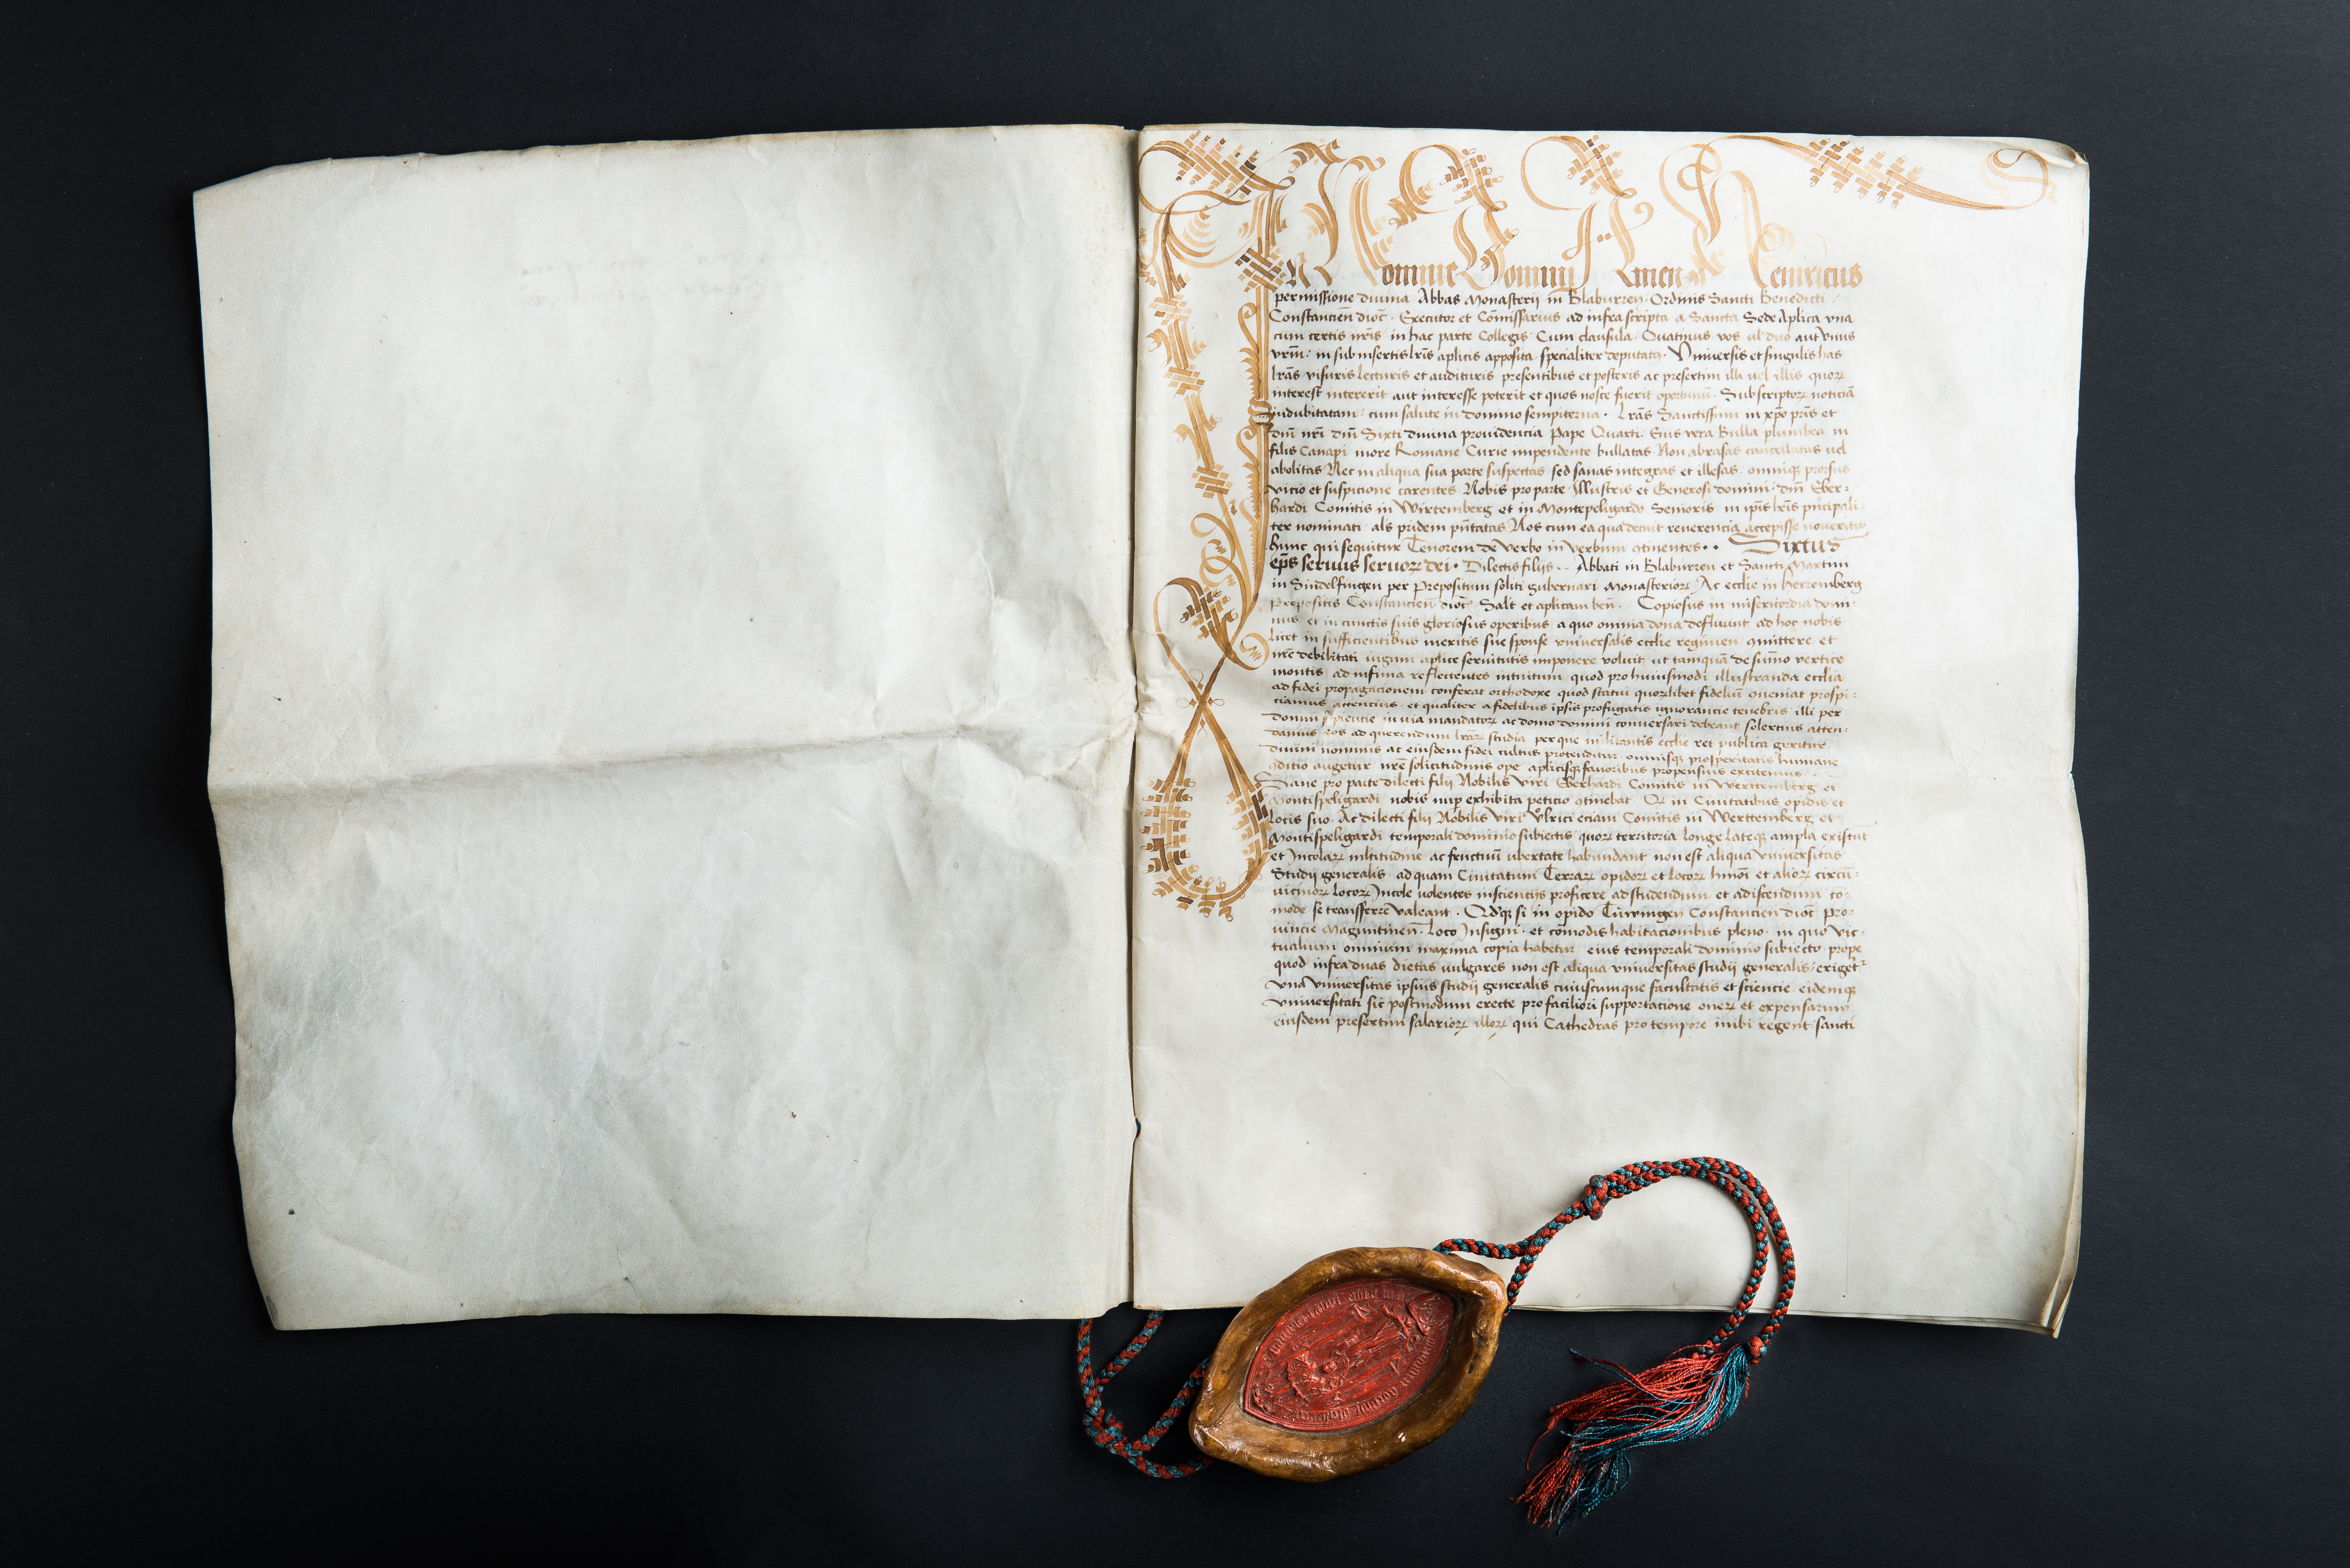 IN Nomine Domini Amen Heinricus
permissione diuina Abbas Monasterij in Blaburren Ordinis Sancti Benedicti
Constancien̄ dioc̄ Executor et Com̄issarius ad infra scripta a Sancta Sede Aplica vna
cum certis nr̄is in hac parte Collegis Cum clausula Quatinus vos vl̄ duo aut vnus
vrm̄ in sub insertis lr̄is aplicis apposita specialiter deputatꝰ Vniuersis et singulis has
lrās visuris lecturis et audituris presentibus et posteris ac presertim illi vel illis quoꝝ
interest intererit aut interesse poterit et quos nosce fuerit oportunū Subscriptoꝝ noticiā
indubitatam cum salute in domino sempiterna Lrās Sanctissimi in xp̄o pr̄is et
dnī nrī dnī Sixti diuina prouidencia Pape Quarti Eius vera Bulla plumbea in
filis Canapi more Romane Curie impendente bullatas Non abrasas cancellatas vel
abolitas Nec in aliqua sua parte suspectas sed sanas integras et illesas omniqꝫ prorsus
vicio et suspicione carentes Nobis pro parte Illustris et Generosi domini dnī Eber-
hardi Comitis in Wirtemberg et in Montepeligardo Senioris in ip̄is lr̄is principali-
ter nominati als pridem pn̄tatas Nos cum ea qua decuit reuerencia accepisse noueritis
hunc qui sequitur Tenorem de verbo in verbum ꝯtinentes Sixtus
ep̄s seruus seruoꝝ dei Dilectis filijs Abbati in Blaburren et Sancti Martini
in Sindelfingen per Prepositum soliti gubernari Monasterioꝝ Ac eccl̄ie in Herremberg
Prepositis Constancien̄ dioc̄ Salt̄ et aplicam ben̄ Copiosus in misericordia domi-
nus et in cunctis suis gloriosus operibus a quo omnia dona defluunt ad hoc nobis
licet in sufficientibus meritis sue sponse vniuersalis eccl̄ie regimen ꝯmittere et
nr̄e debilitati iugum aplice seruitutis imponere voluit ut tamquā de sum̄o vertice
montis ad infima reflectentes intuitum quod pro huiusmodi illustranda eccl̄ia
ad fidei propagacionem conferat orthodoxe quod statui quorūlibet fideliū ꝯueniat prospi-
ciamus attencius et qualiter a fidelibus ipsis profugatis ignorancie tenebris illi per
donum sapiencie in via mandatoꝝ ac domo domini conuersari debeant solercius atten-
damus eos ad querendum lrār̄ studia per que militantis eccl̄ie res publica geritur
diuini nominis ac eiusdem fidei cultus protenditur omnisqꝫ prosperitatis humane
ꝯditio augetur nr̄e solicitudinis ope aplicisqꝫ fauoribus propensius excitemus
Sane pro parte dilecti filij Nobilis viri Eberhardi Comitis in Werttemberg et
Montispeligardi nobis nup̄ exhibita peticio ꝯtinebat Qꝫ in Ciuitatibus opidis et
locis suo Ac dilecti filij Nobilis viri Vlrici eciam Comitis in Werttemberg et
Montispeligardi temporali dominio subiectis quoꝝ territoria longe lateqꝫ ampla existūt
et Incolaꝝ ml̄titudine ac fructuū vbertate habundant non est aliqua vniuersitas
Studij generalis ad quam Ciuitatum Terraꝝ opidoꝝ et locoꝝ hm̄oī et alioꝝ circū-
uicinoꝝ locoꝝ Incole volentes in scientijs proficere ad studendum et adiscendum co-
mode se transferre valeant Qd̄qꝫ si in opido Tüwingen Constancien̄ dioc̄ Pro-
uincie Maguntinen̄ Loco Insigni et com̄odis habitacionibus pleno in quo vic-
tualium omnium maxima copia habetur eius temporali dominio subiecto prope
quod infra duas dietas vulgares non est aliqua vniuersitas studij generalis erigeretꝰ
vna vniuersitas ipsius studij generalis cuiuscumque facultatis et sciencie eidemqꝫ
vniuersitati sic postmodum erecte pro faciliori supportacione oneꝝ et expensarum
eiusdem presertim salarioꝝ illoꝝ qui Cathedras pro tempore inibi regent sancti